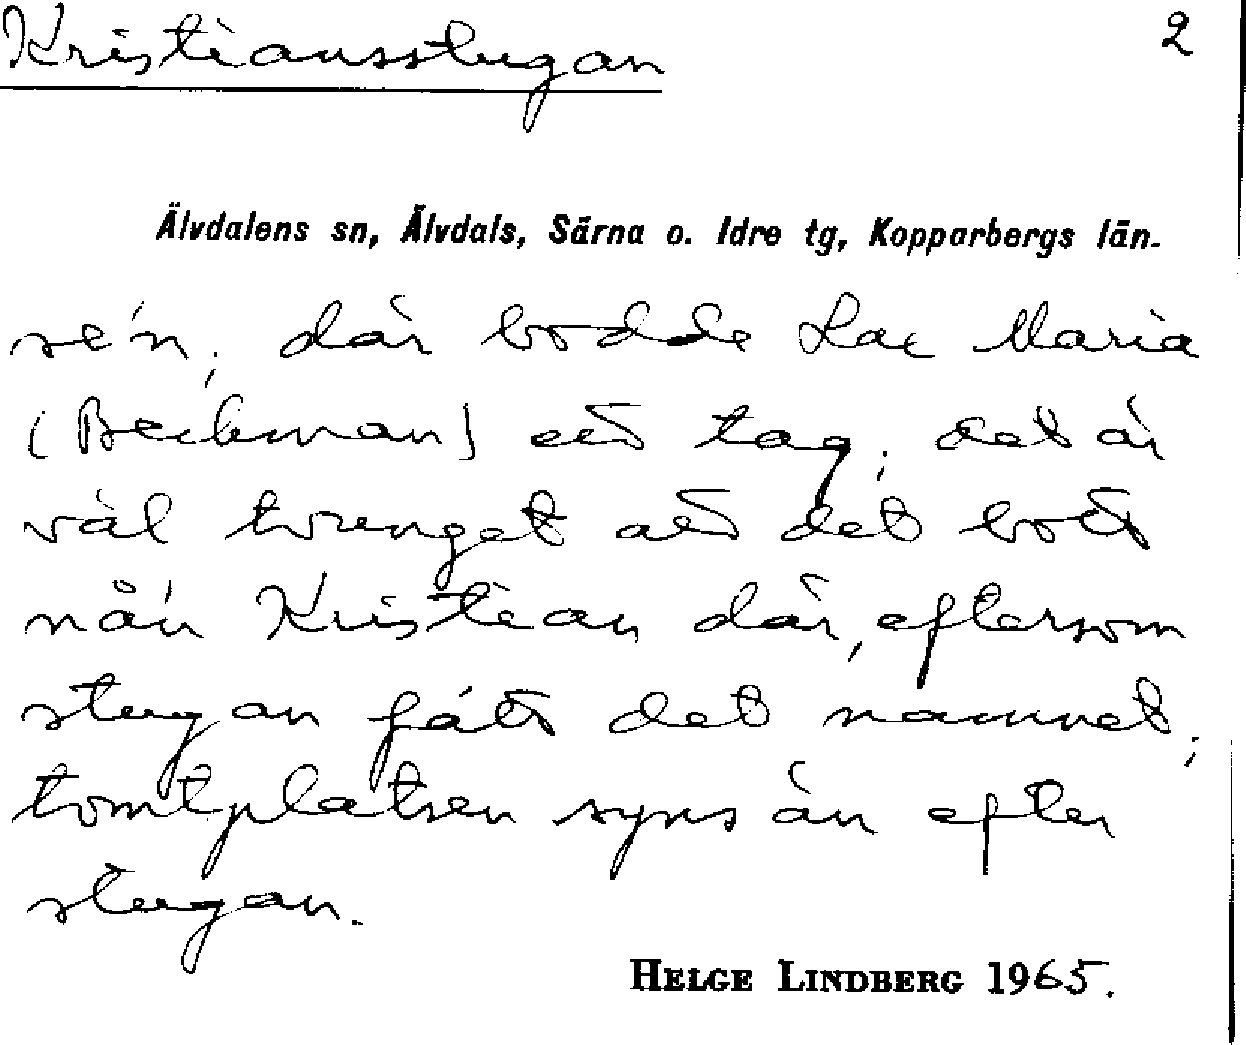 Kristiansstugan 2
Älvdalens sn, Älvdals, Särna o. Idre tg, Kopparbergs län.
se'n; där bodde Lac Maria
(Beckman) ett tag; det är
väl tvenget att det bott
nå'n Kristian där, eftersom
stugan fått det namnet;
tomtplatsen syns än efter
stugan.
HELGE LINDBERG 1965.